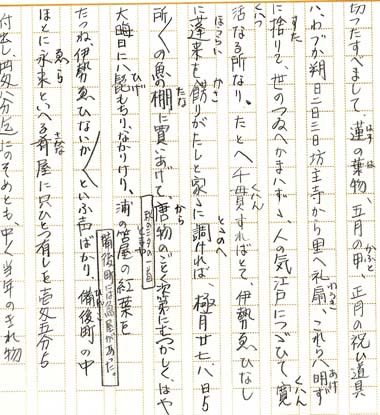 切つたすべまして、蓮の葉物、五月の甲、正月の祝ひ道具
ハ、わづか朔日二日三日坊主寺から里へ礼扇、これらハ明ず
に捨りて、世のつゐへかまハず、人の気江戸につゞひて寛
活なる所なり。たとへ千貫すればとて、伊勢ゑびなし
に蓬来を餝りがたしと家々に調ければ、極月廿七八日ゟ
所〳〵の魚の棚に買いあげて、唐物のごとく次第にむつかしく、はや
大晦日にハ髭もちりもなかりけり。浦の笘屋の紅葉を
たつね伊勢ゑひないか〳〵といふ声ばかり、備後町の中
ほどに永来といへる肴屋に只ひとつ有しを壱匁五分ゟ
付出し、四匁八分迄にのぞめとも、中々当年のきれ物
備後町には魚屋があった。